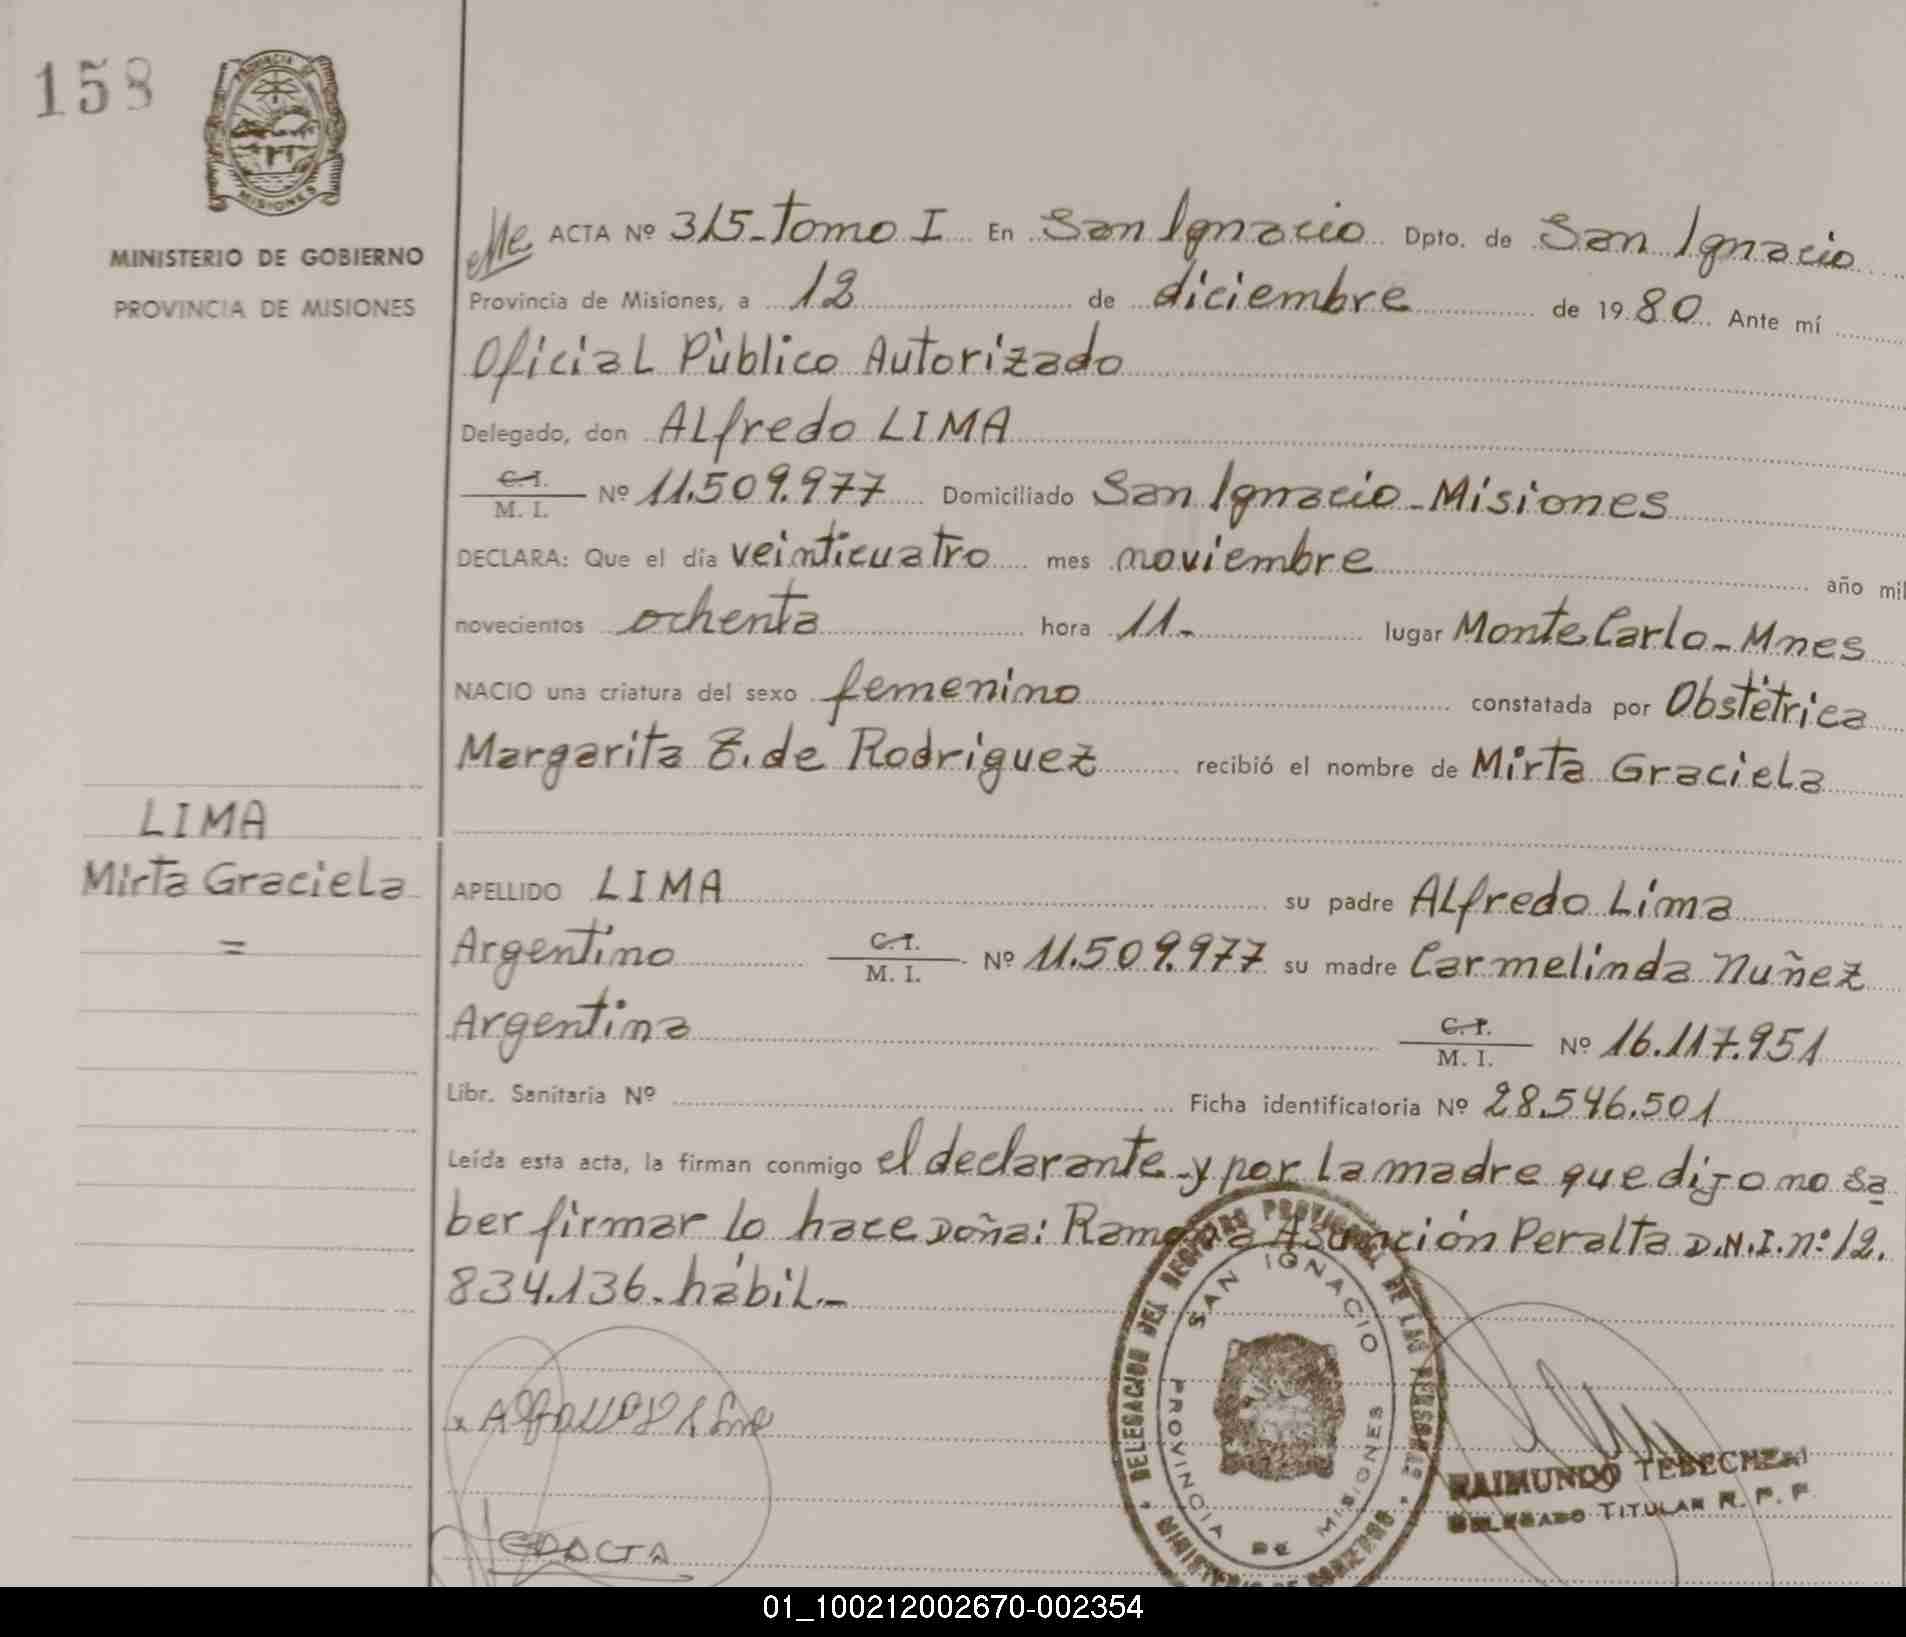 158
PROVINCIA DE
MISIONES
MINISTERIO DE GOBIERNO
PROVINCIA DE MISIONES
ACTA Nº 315-Tomo I En San Ignacio Dpto. de San Ignacio
Provincia de Misiones, a 12 de diciembre de 19 80 Ante mí
Oficial Pùblico Autorizado
Delegado, don Alfredo LIMA
C. I.
M. I. Nº 11.509.977 Domiciliado San Ignacio-Misiones
DECLARA: Que el día veinticuatro mes noviembre año mil
novecientos ochenta hora 11.- lugar Monte Carlo-Mnes
NACIO una criatura del sexo femenino constatada por Obstètrica
Margarita Z. de Rodriguez recibió el nombre de Mirta Graciela
LIMA
Mirta Graciela
=
APELLIDO LIMA su padre Alfredo Lima
Argentino C. I.
M. I. Nº 11.509.977 su madre Carmelinda Nuñez
Argentina C. I.
M. I. Nº 16.117.951
Libr. Sanitaria Nº Ficha identificatoria Nº 28.546.501
Leída esta acta, la firman conmigo el declarante y por la madre que dijo no sa
ber firmar lo hace Doña: Ramona Asunción Peralta D.N.I. nº 12.
834.136. hábil.-
DELEGACION DEL REGISTRO PROVINCIAL DE LAS PERSONAS
SAN IGNACIO
PROVINCIA DE MISIONES
MINISTERIO DE GOBIERNO
RAIMUNDO
DELEGADO TITULAR R. P. P.
01_100212002670-002354